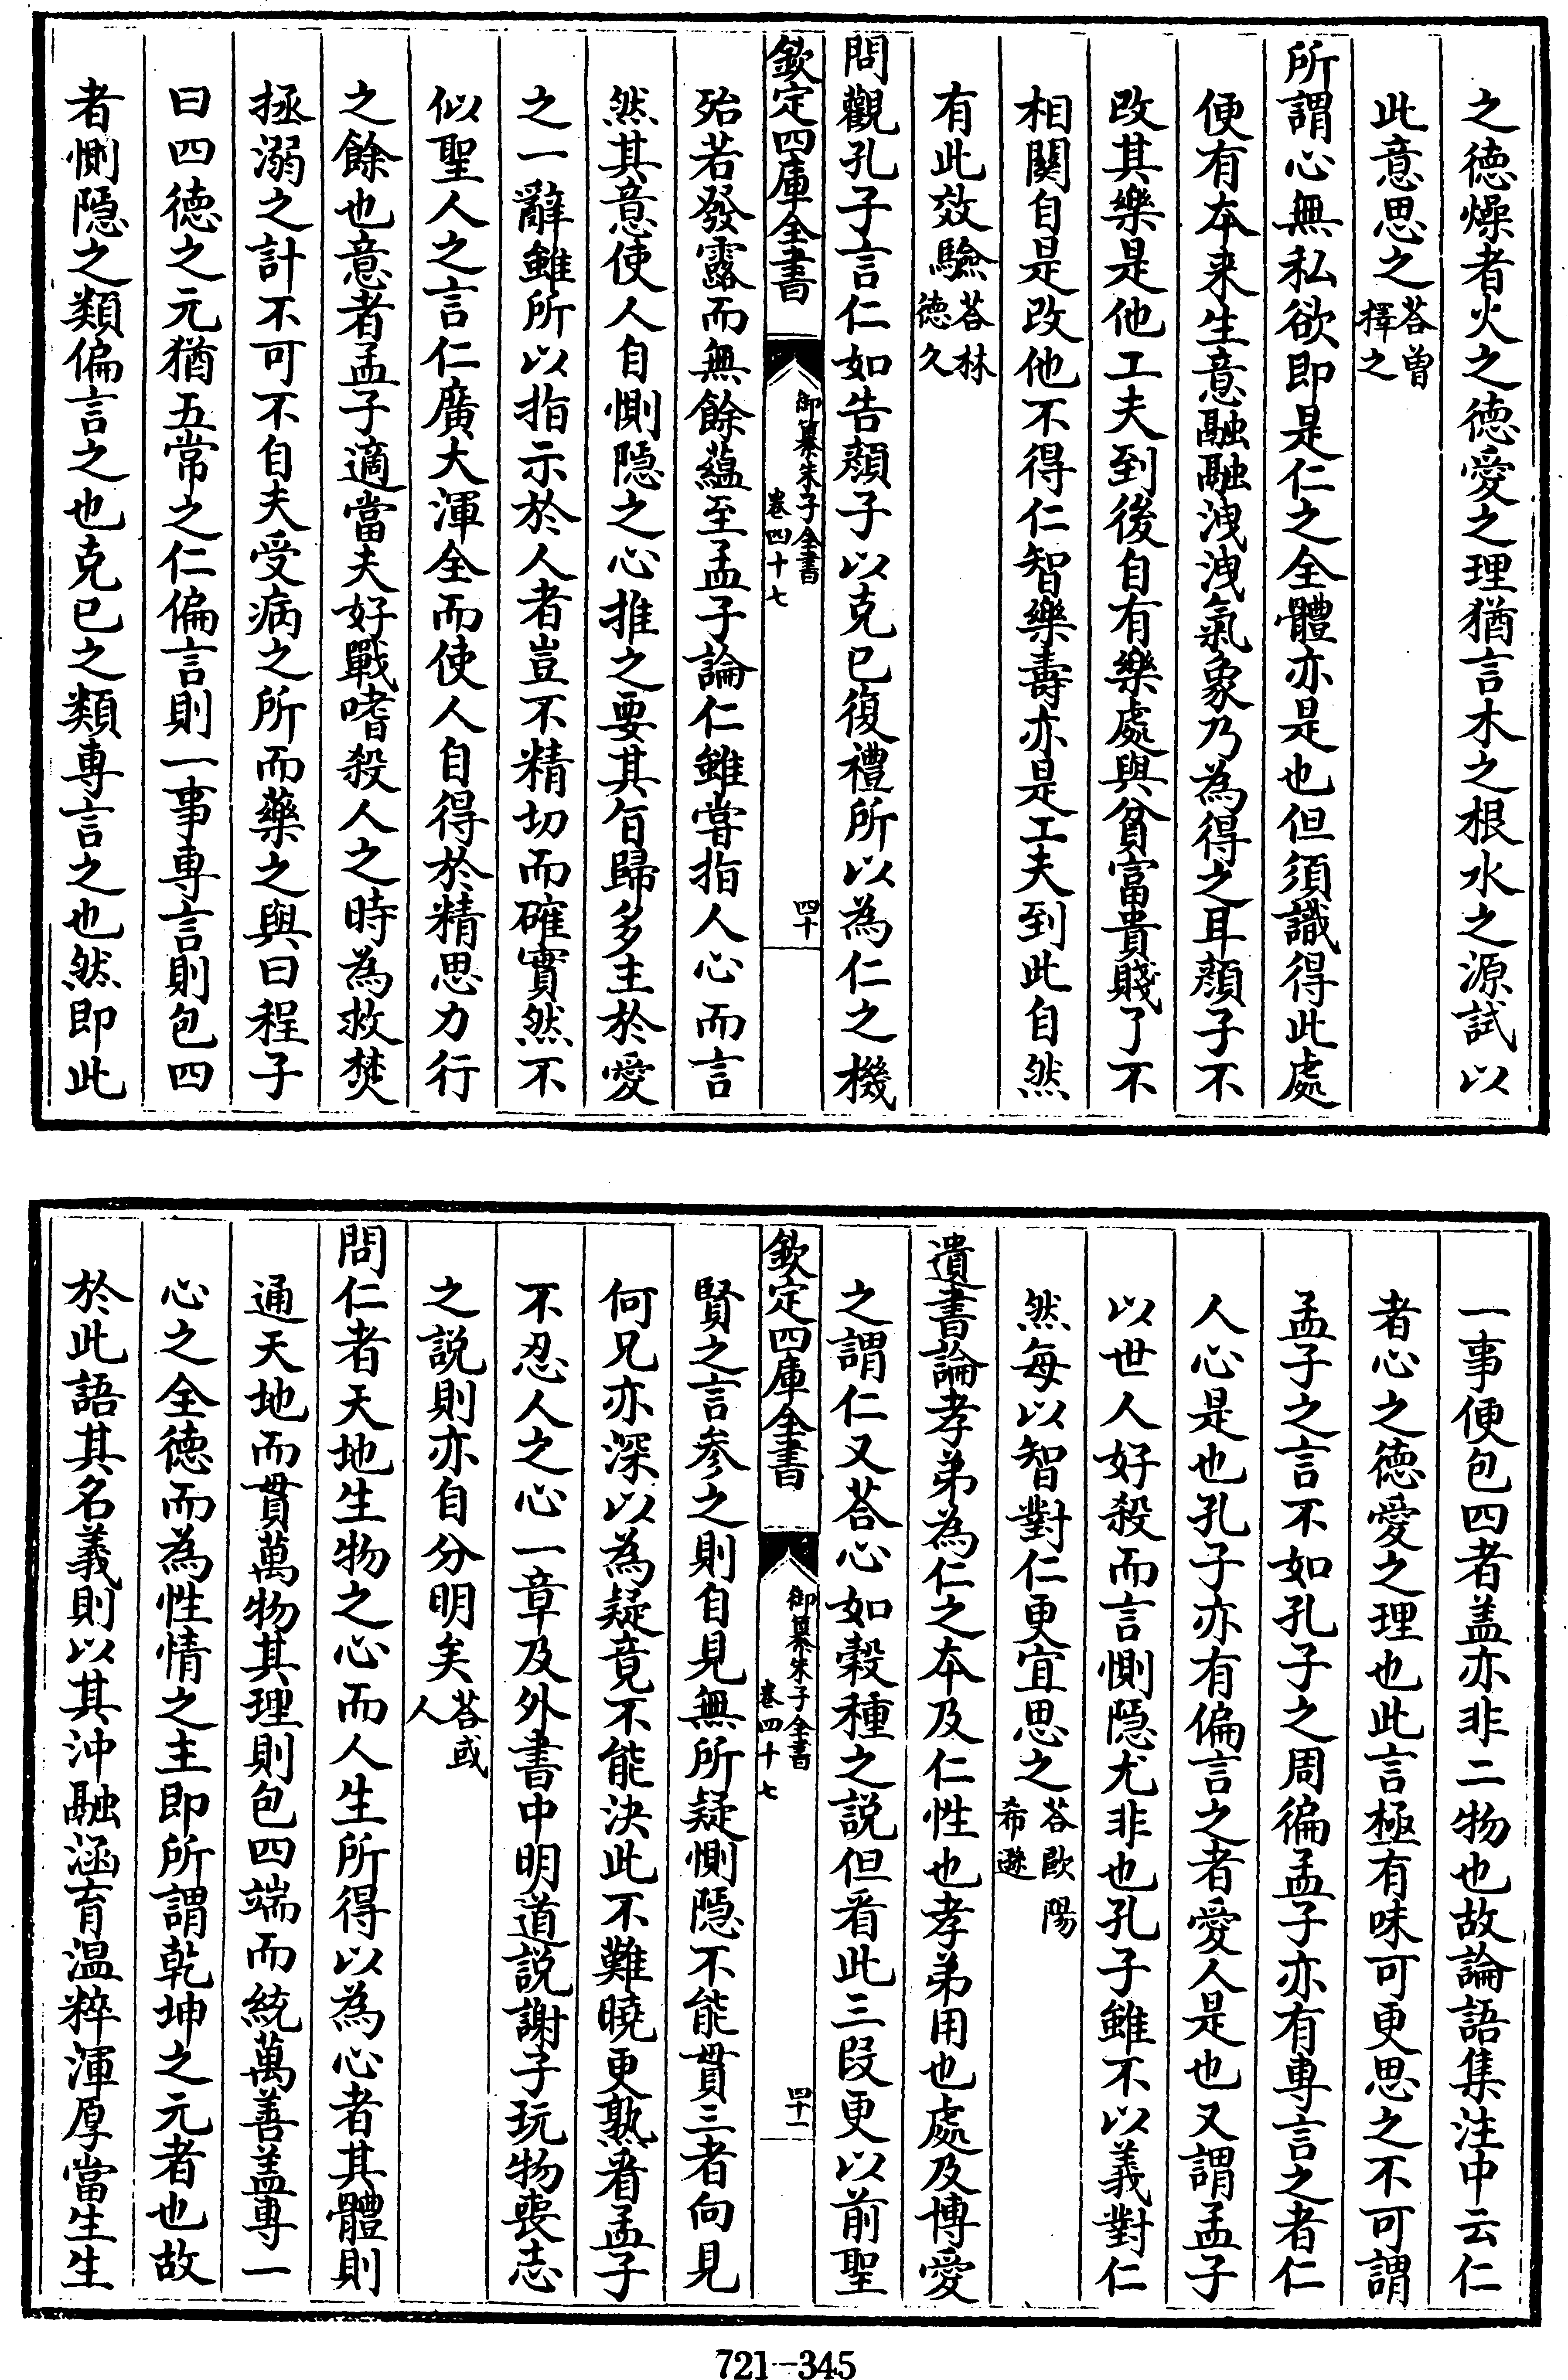 之德燥者火之德愛之理猶言木之根水之源試以
此意思之荅曾擇之
所謂心無私欲即是仁之全體亦是也但須識得此處
便有本来生意融融洩洩氣象乃為得之耳顔子不
改其樂是他工夫到後自有樂處與貧富貴賤了不
相關自是改他不得仁智樂壽亦是工夫到此自然
有此效驗荅林德久
問觀孔子言仁如告顔子以克己復禮所以為仁之機
欽定四庫全書 御纂朱子全書 卷四十七 四十
殆若發露而無餘蘊至孟子論仁雖甞指人心而言
然其意使人自惻隠之心推之要其㫖歸多主於愛
之一辭雖所以指示於人者豈不精切而確實然不
似聖人之言仁廣大渾全而使人自得於精思力行
之餘也意者孟子適當夫好戰嗜殺人之時為救焚
拯溺之計不可不自夫受病之所而藥之與曰程子
曰四德之元猶五常之仁偏言則一事專言則包四
者惻隠之類偏言之也克己之類專言之也然即此
一事便包四者盖亦非二物也故論語集注中云仁
者心之德愛之理也此言極有味可更思之不可謂
孟子之言不如孔子之周徧孟子亦有專言之者仁
人心是也孔子亦有偏言之者愛人是也又謂孟子
以世人好殺而言惻隠尤非也孔子雖不以義對仁
然每以智對仁更宜思之荅歐陽希遜
遺書論孝弟為仁之本及仁性也孝弟用也處及博愛
之謂仁又荅心如穀種之説但看此三段更以前聖
欽定四庫全書 御纂朱子全書 卷四十七 四十一
賢之言参之則自見無所疑惻隠不能貫三者向見
何兄亦深以為疑竟不能決此不難曉更熟看孟子
不忍人之心一章及外書中明道説謝子玩物喪志
之説則亦自分明矣荅或人
問仁者天地生物之心而人生所得以為心者其體則
通天地而貫萬物其理則包四端而統萬善盖專一
心之全德而為性情之主即所謂乾坤之元者也故
於此語其名義則以其沖融涵育温粹渾厚當生生
721-345